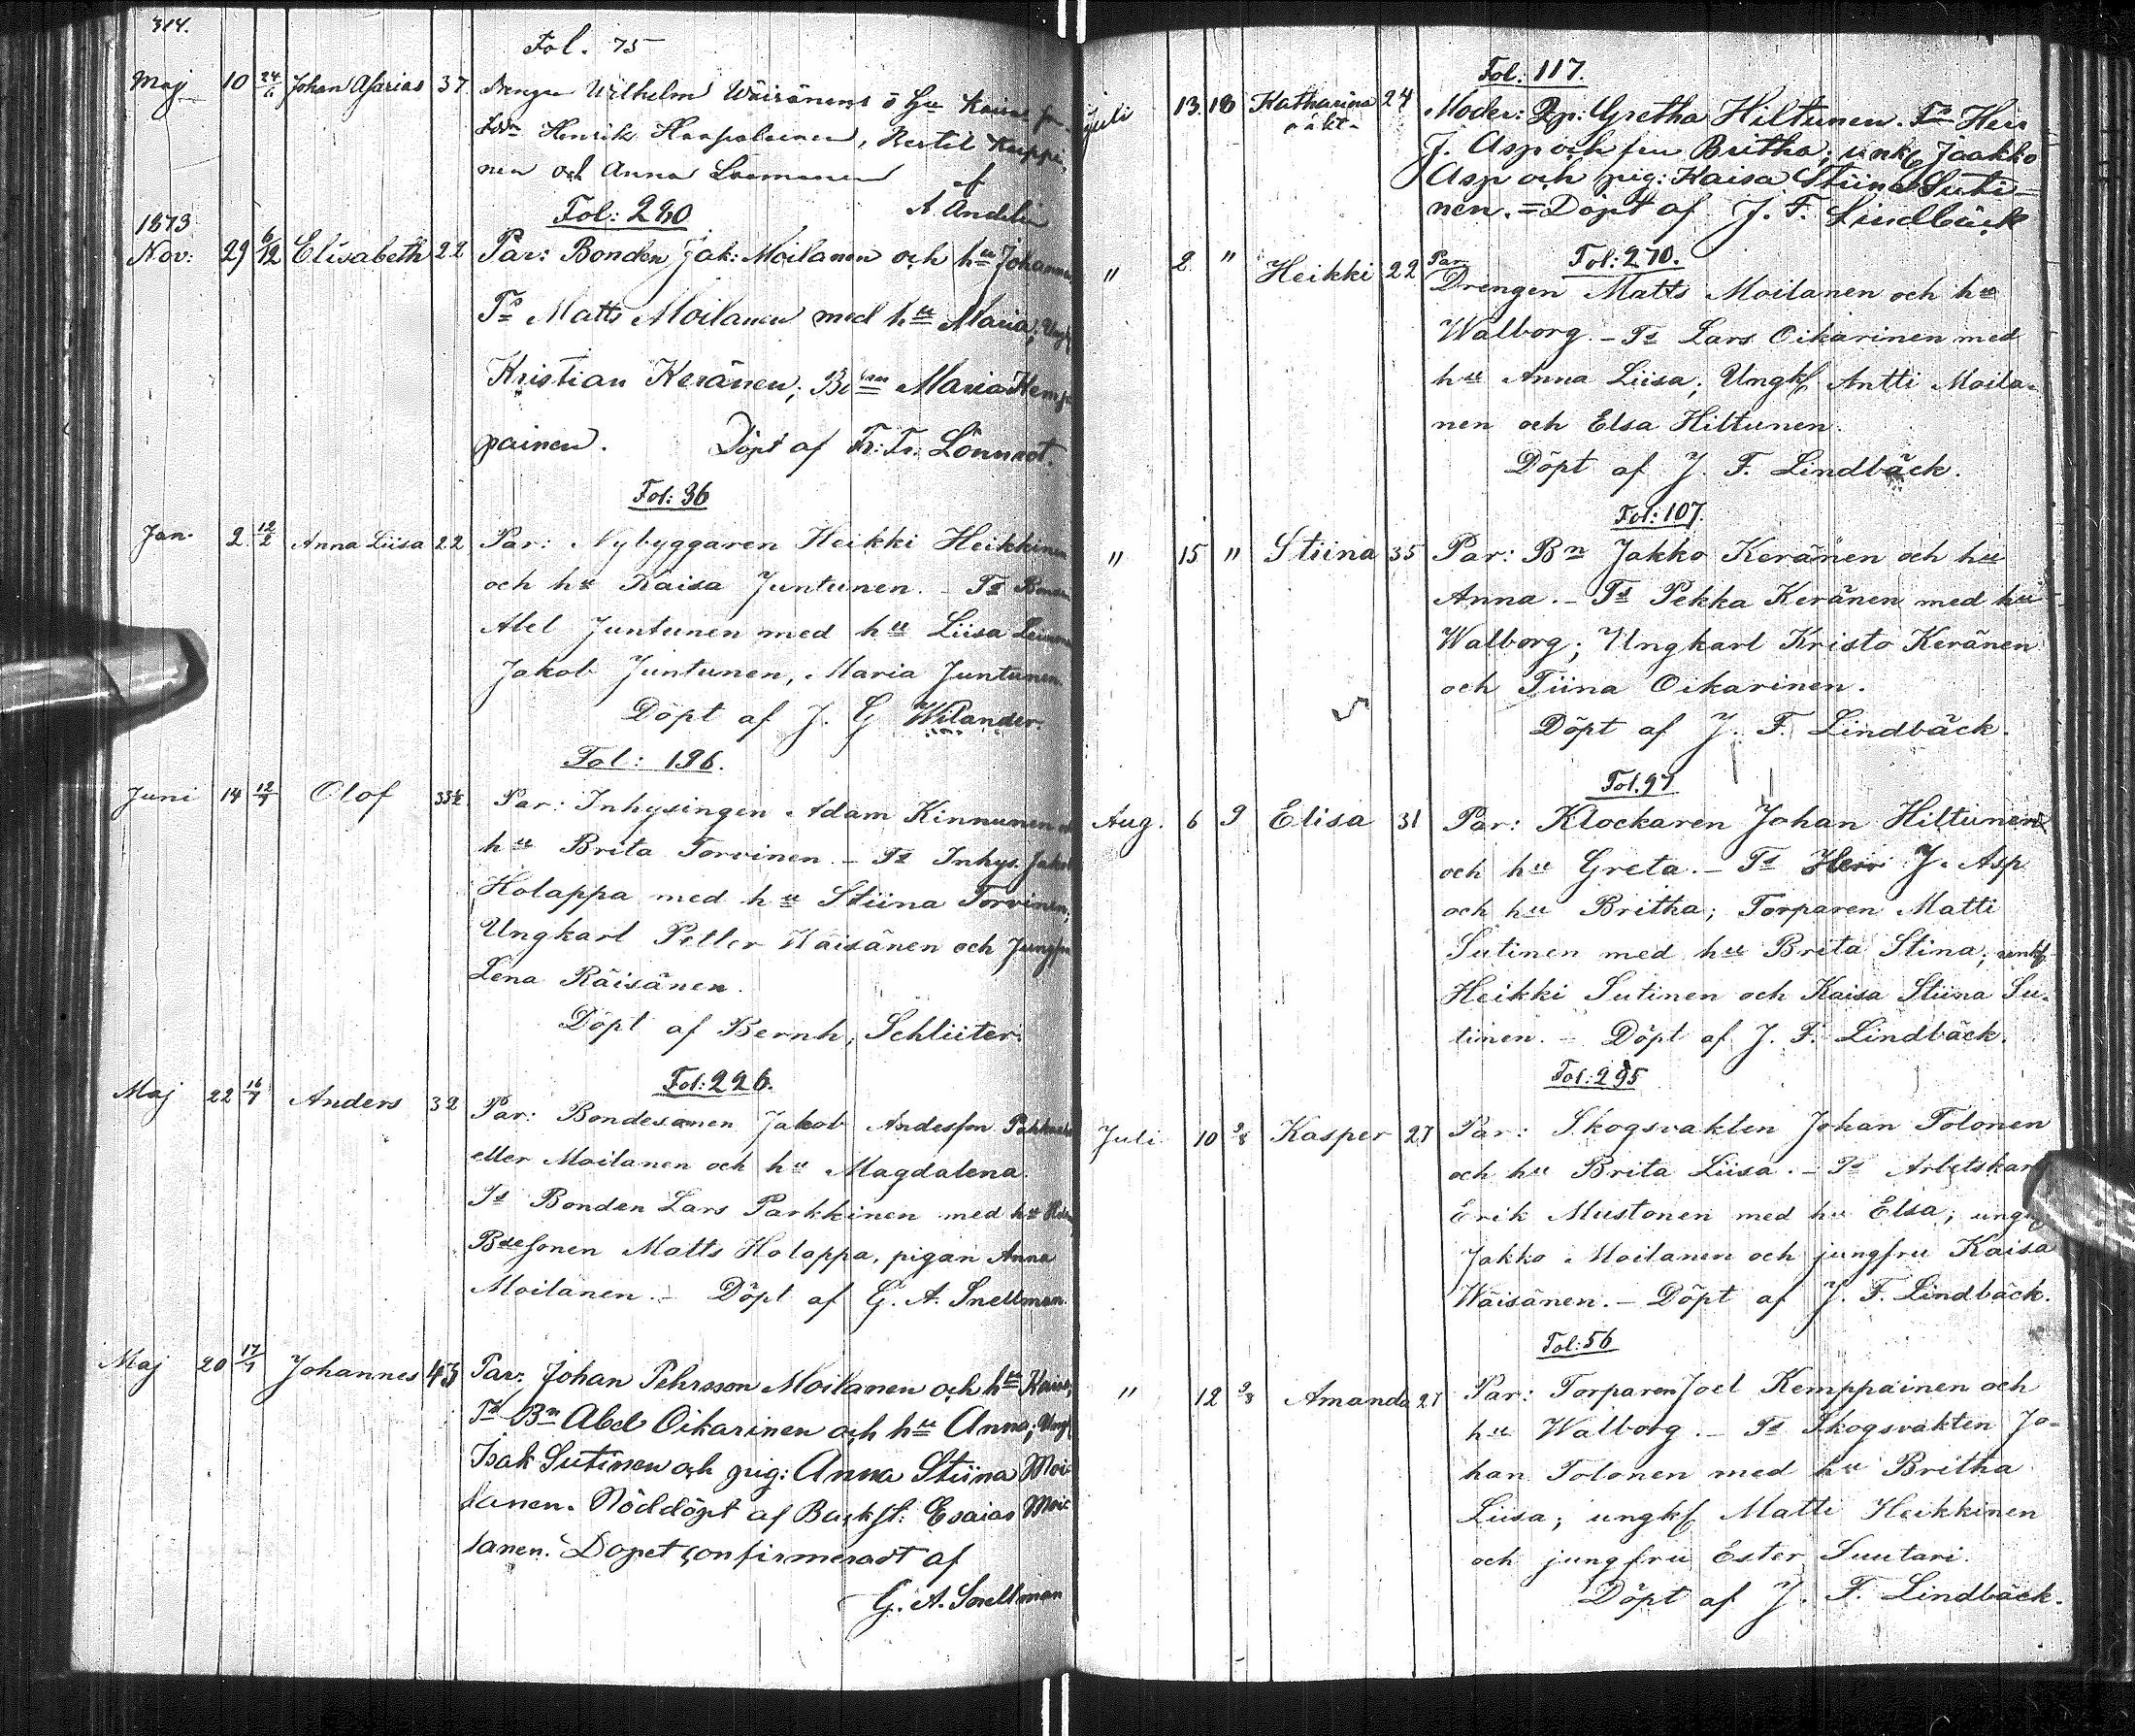 314.
Fol. 75
Maj 10 24/6 Johan Asarias 37 Drengen Wilhelm Wäisänens o hu Kaisas
Henrik Haapalainen, Bertil Kuppi-
nen och Anna
af
A Andelin
1873 Fol: 280
Nov: 29 6/12 Elisabeth 22 Par: Bonden Jak: Moilanen och hu Johanna
Ts Matts Moilanen med hu Maria; Ungk
Kristian Keränen; Maria Kemp-
painen. Döpt af Fr: Fr. Lönnrot.
Fol: 36
Jan. 2 12/2 Anna Liisa 22 Par: Nybyggaren Heikki Heikkinen
och hu Kaisa Juntunen. – Ts Bonden
Abel Juntunen med hu Liisa
Jakob Juntunen, Maria Juntunen.
Döpt af J. G Wilander.
Fol: 196.
Juni 14 12/7 Olof 33½ Par: Inhysingen Adam Kinnunen
hu Brita Torvinen. – Ts Inhys. Jakob
Holappa med hu Stiina Torvinen;
Ungkarl Petter Wäisänen och Jungfru
Lena Räisänen.
Döpt af Bernh. Schlüter.
Fol: 226.
Maj 22 16/7 Anders 32 Par: Bondesonen Jakob Andersson
eller Moilanen och hu Magdalena.
Ts Bonden Lars Parkkinen med hu
Bdesonen Matts Holappa, pigan Anna
Moilanen. – Döpt af G. A. Snellman.
Maj 20 17/7 Johannes 43 Par: Johan Pehrsson Moilanen och hu Kaisa,
Ts Bn Abel Oikarinen och hu Anna; Ungk
Isak Sutinen och pig: Anna Stiina Moi-
lanen. Nöddöpt af Backst: Esaias Moi-
lanen. Dopet confirmeradt af
G. A. Snellman
Fol: 117.
Juli 13. 18 Katharina 24 Moder: Pig: Gretha Hiltunen. Ts Herr
oäkt- J. Asp och fru Britha; unkf Jaakko
Asp och pig: Kaisa Stiina Suti-
nen. = Döpt af J. F. Lindbäck
Fol: 270.
" 2 " Heikki 22 Par Drengen Matts Moilanen och hu
Walborg. – Ts Lars Oikarinen med
hu Anna Liisa; Ungkf Antti Moila-
nen och Elsa Hiltunen.
Döpt af J. F. Lindbäck.
Fol: 107.
" 15 " Stiina 35 Par: Bn Jakko Keränen och hu
Anna. – Ts Pekka Keränen med hu
Walborg; Ungkarl Kristo Keränen
och Tiina Oikarinen.
Döpt af J. F. Lindbäck.
Fol. 97
Aug. 6 9 Elisa 31 Par: Klockaren Johan Hiltunen
och hu Greta. – Ts Herr J. Asp
och hu Britha; Torparen Matti
Sutinen med hu Brita Stina; unkf
Heikki Sutinen och Kaisa Stiina Su-
tinen. – Döpt af J. F. Lindbäck.
Fol: 295
Juli 10 9/8 Kasper 27 Par: Skogsvakten Johan Tolonen
och hu Brita Liisa. – Ts Arbetskarl
Erik Mustonen med hu Elsa; ungkf
Jakko Moilanen och jungfru Kaisa
Wäisänen. – Döpt af J. F. Lindbäck.
Fol: 56
" 12 9/8 Amanda 27 Par: Torparen Joel Kemppainen och
hu Walborg. – Ts Skogsvakten Jo-
han Tolonen med hu Britha
Liisa; ungkf Matti Heikkinen
och jungfru Ester Suutari.
Döpt af J. F. Lindbäck.